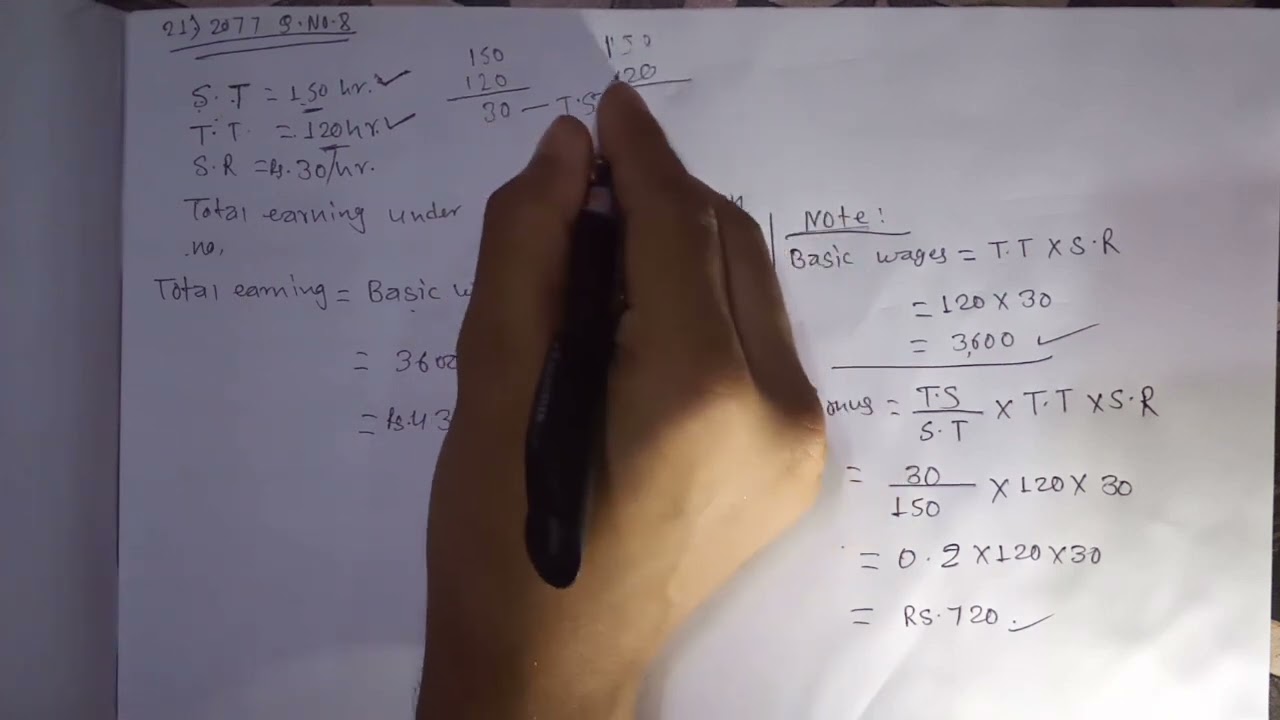 21) 2077 Q.NO.8
S.T = 150 hr.
T.T. = 120 hr.
S.R = Rs.30/hr.
150
120
30 — T.S
150
120
Total earning under
no.
Total earning = Basic
= 3600
= Rs.43
Note:
Basic wages = T.T X S.R
= 120 X 30
= 3,600
onus = T.S / S.T X T.T X S.R
= 30 / 150 X 120 X 30
= 0.2 X 120 X 30
= RS.720